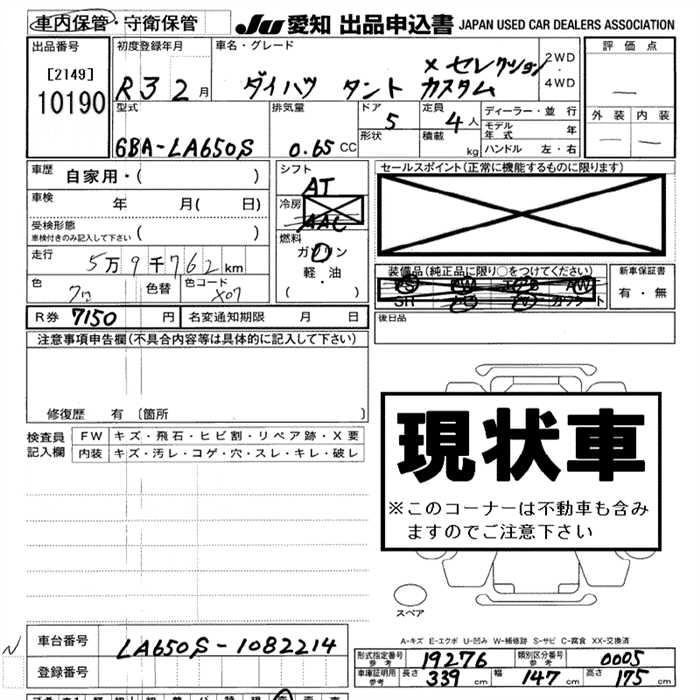 車内保管・守衛保管 JU 愛知 出品申込書 JAPAN USED CAR DEALERS ASSOCIATION
出品番号 初度登録年月 車名・グレード 2WD・4WD 評価点
[2149] R3 2月 ダイハツ タント カスタム ×セレクション
10190
型式 排気量 ドア 5 定員 4人 ディーラー・並行 外装 内装
6BA-LA650S 0.65 CC 形状 積載 kg モデル年式 年
ハンドル 左・右
車歴 自家用・( ) シフト AT セールスポイント(正常に機能するものに限ります)
車検 年 月( 日) 冷房 AAC
受検形態 ( )
車検付きのみ記入して下さい
燃料 ガソリン
走行 5万9千762km 軽・油
( )
装備品(純正品に限り○をつけてください) 新車保証書
色 クロ 色替 色コード X07 SR AW カワシート 有・無
R券 7150 円 名変通知期限 月 日 後日品
注意事項申告欄(不具合内容等は具体的に記入して下さい)
修復歴 有 〔箇所 〕
検査員記入欄 FW キズ・飛石・ヒビ割・リペア跡・X要
内装 キズ・汚レ・コゲ・穴・スレ・キレ・破レ
現状車
※このコーナーは不動車も含み
ますのでご注意下さい
スペア
A-キズ E-エクボ U-凹み W-補修跡 S-サビ C-腐食 XX-交換済
N 車台番号 LA650S-1082214
型式指定番号 参考 19276 類別区分番号 参考 0005
登録番号 車庫証明用 参考 長さ 339 cm 幅 147 cm 高さ 175 cm